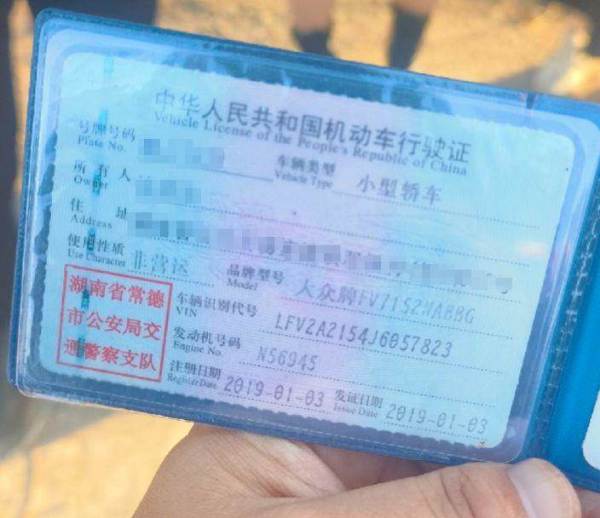 中华人民共和国机动车行驶证
Vehicle License of the People's Republic of China
号牌号码 车辆类型 小型轿车
Plate No. Vehicle Type
所有人
Owner
住址
Address
使用性质 非营运 品牌型号 大众牌FV7152NABBG
Use Character Model
湖南省常德
市公安局交
通警察支队
车辆识别代号 LFV2A2154J6057823
VIN
发动机号码 N56945
Engine No.
注册日期 2019-01-03 发证日期 2019-01-03
Register Date Issue Date